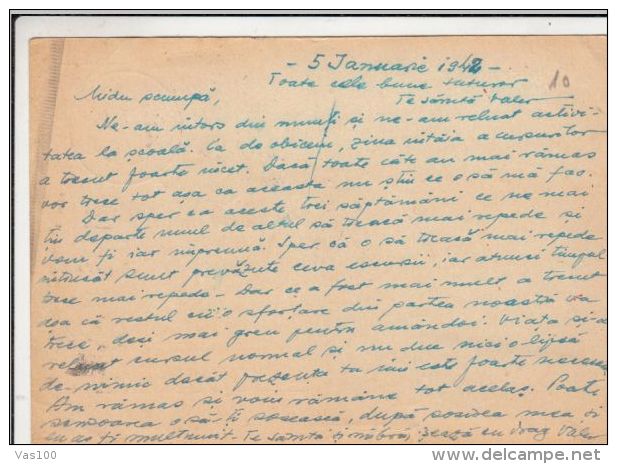 - 5 Ianuarie 1942 -
Toate cele bune tuturor
10
Midu scumpă,
Te sărută Valer
Ne-am întors din munți și ne-am reluat activi-
tatea la școală. Ca de obiceiu, ziua întâia a cursurilor
a trecut foarte încet. Dacă toate câte au mai rămas
vor trece tot așa ca aceasta nu știu ce o să mă fac.
Dar sper ca aceste trei săptămâni ce ne mai
țin departe unul de altul să treacă mai repede și
vom fi iar împreună. Sper că o să treacă mai repede
întrucât sunt prevăzute ceva excursii, iar atunci timpul
trece mai repede. Dar ce a fost mai mult a trecut
așa că restul cu o sforțare din partea noastră va
trece, deși mai greu pentru amândoi. Viața și-a
reluat cursul normal și nu duc nici o lipsă
de nimic decât prezența ta îmi este foarte
Am rămas și voiu rămâne tot același. Poate
scrisoarea o să-ți sosească, după sosirea mea și
eu aș fi mulțumit. Te sărută și îmbrățișează cu drag Valer
Vas100
delcampe.net